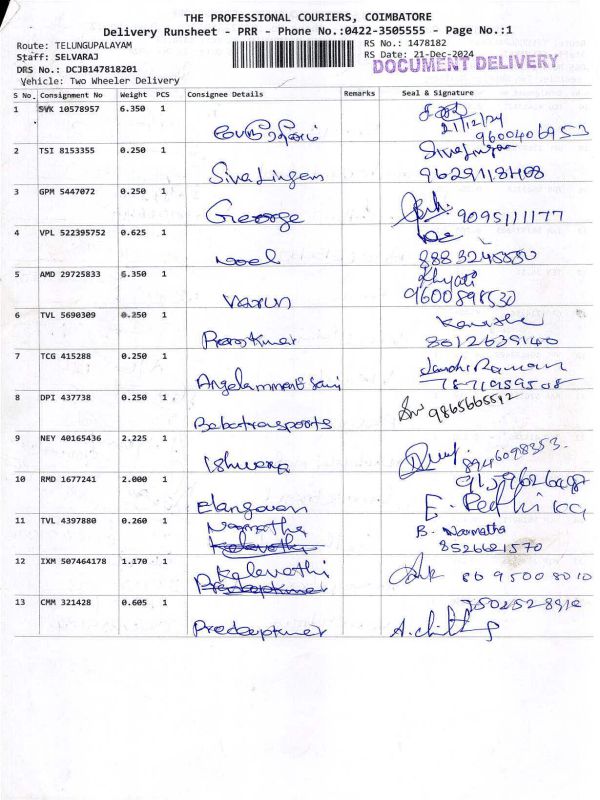 THE PROFESSIONAL COURIERS, COIMBATORE
Delivery Runsheet - PRR - Phone No.:0422-3505555 - Page No.:1
Route: TELUNGUPALAYAM RS No.: 1478182
Staff: SELVARAJ RS Date: 21-Dec-2024
DRS No.: DCJB147818201 DOCUMENT DELIVERY
Vehicle: Two Wheeler Delivery
S No. Consignment No Weight PCS Consignee Details Remarks Seal & Signature
1 SVK 10578957 6.350 1
21/12/24
9600406953
2 TSI 8153355 0.250 1 SivaLingam
Sivalingam
9629118408
3 GPM 5447072 0.250 1 George 9095111177
4 VPL 522395752 0.625 1 Noel
8883245550
5 AMD 29725833 6.350 1 Varun Khyati
9600898530
6 TVL 5690309 0.250 1 Ramkumar Kavitha
8012639140
7 TCG 415288 0.250 1 Angelamment Sami
8 DPI 437738 0.250 1 Babatransports 9865665512
9 NEY 40165436 2.225 1 Ishwara 8946098353
10 RMD 1677241 2.000 1 Elangovan
11 TVL 4397880 0.260 1 Narmatha B. Narmatha
Kalavathi 8526621570
12 IXM 507464178 1.170 1 Kalavathi 8695008010
Pradeepkumar
13 CMM 321428 0.605 1 Pradeepkumar